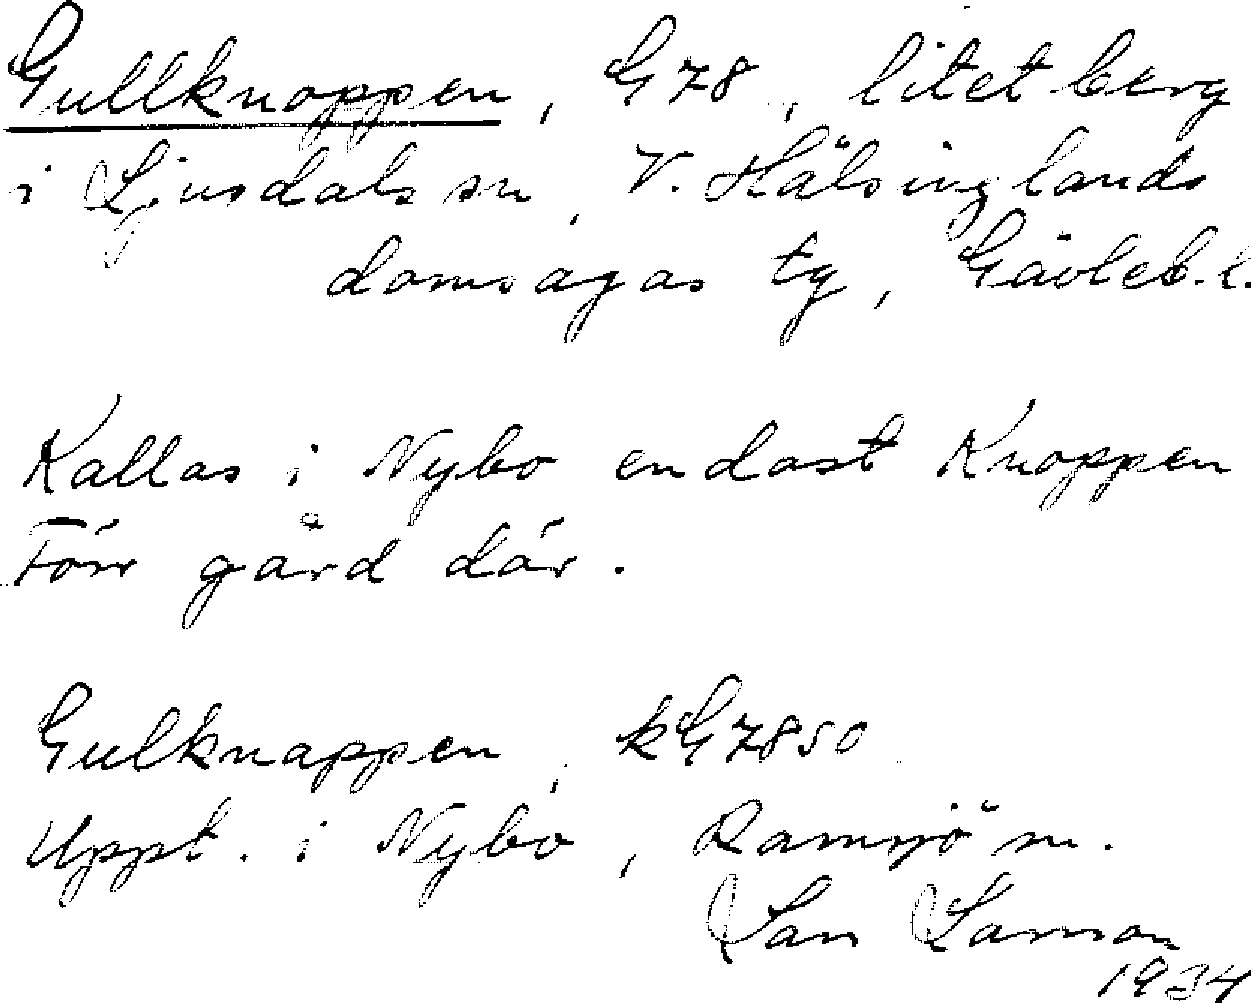 Gullknoppen, G78, litet berg
i Ljusdals sn, V. Hälsinglands
domsagas tg, Gävleb. l.
Kallas i Nybo endast Knoppen
Förr gård där.
Gulknappen, kG7850
Uppt. i Nybo, Ramsjö sn.
Lars Larsson
1934